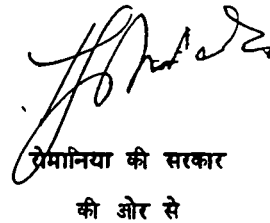 रोमानिया की सरकार
की ओर से